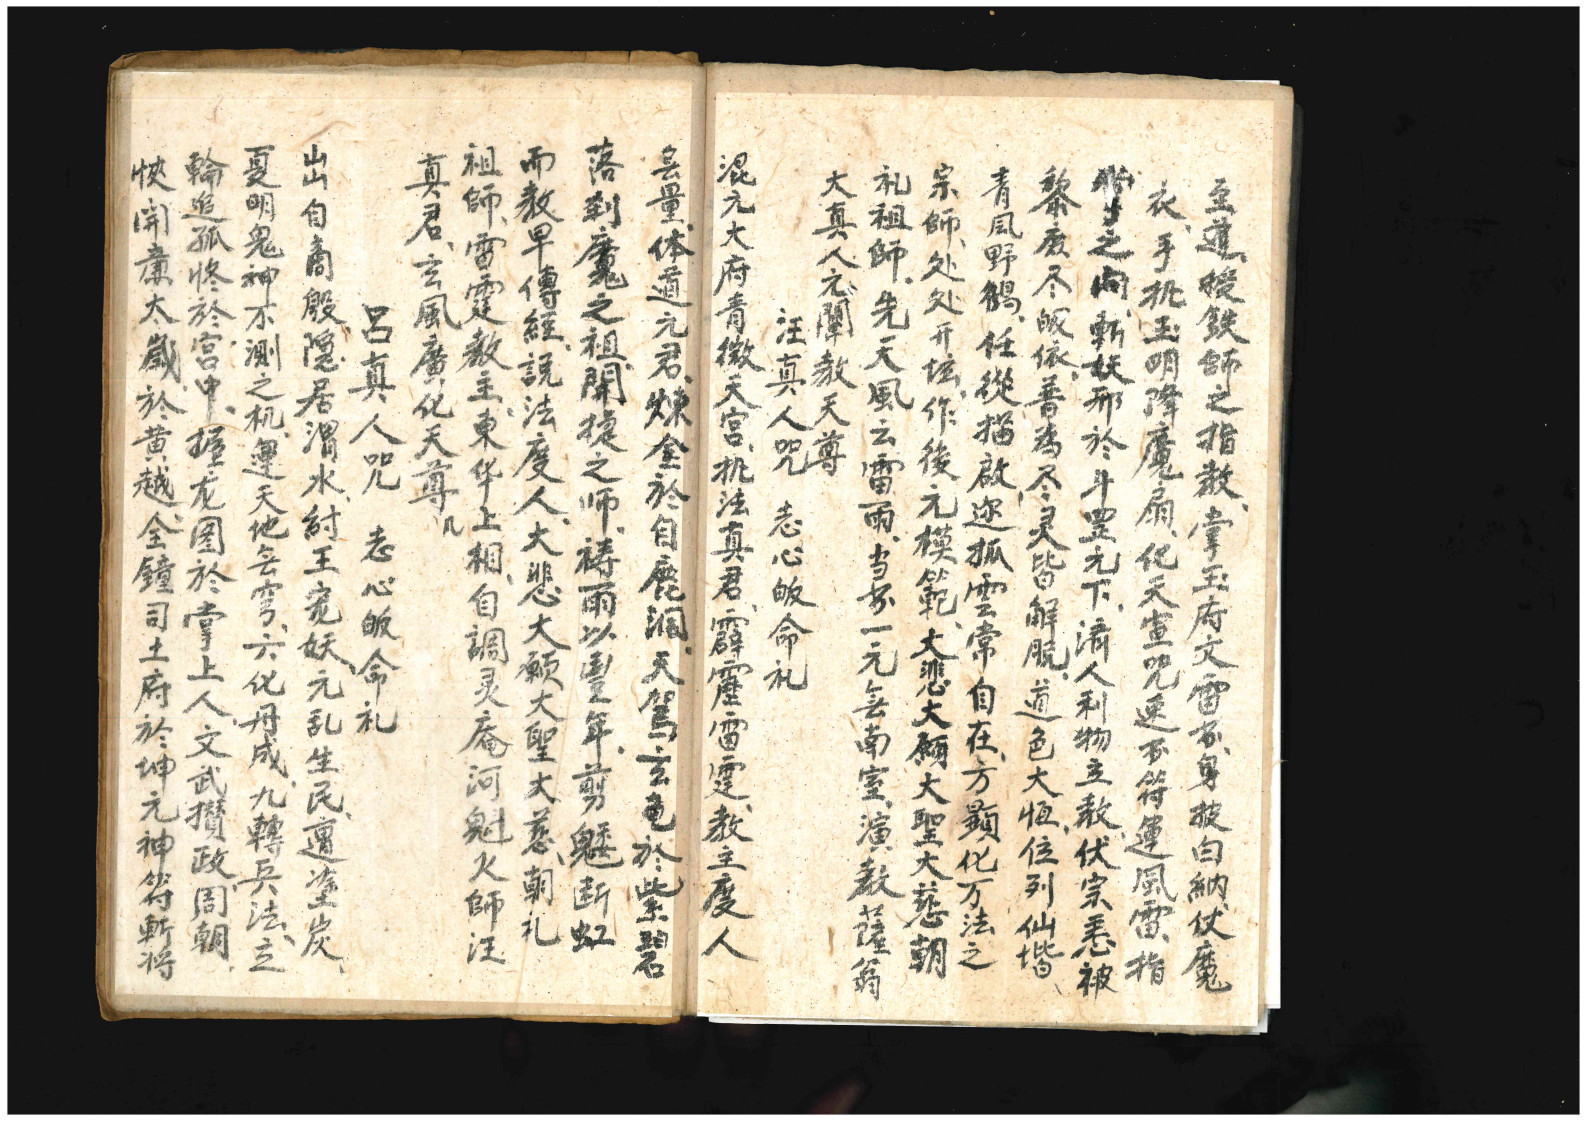 至進授鉄師之指教、掌玉府文雷部、身披白納伏魔
衣、手執玉明降魔扇、化天宣咒速下符、運風雷、指
之間、斬妖邪於斗罡元下、済人利物立教、伏宗悉被
黎庶尽皈依、普為尽灵皆解脱、道色大恒、位列仙堦
青風野鶴、任從描啟、迩孤雲常自在、方顕化万法之
宗師、处处开坛、作後元模範、大悲大願大聖大慈朝
礼祖師、先天風云雷雨、当部一元無南室、演教薩翁
大真人元闡教天尊
汪真人咒 志心皈命礼
混元大府青微天宫、执法真君、霹靂雷霆、教主度人
無量、体道元君、煉金於自鹿洞、天篤玄龟於紫碧
落剌魔之祖、開捷之师、祷雨以豊年、剪魃断虹
而教早傳經、説法度人、大悲大願大聖大慈、朝礼
祖師、雷霆教主、東华上相、自調灵庵河魁火師汪
真君、玄風廣化天尊
呂真人咒 志心皈命礼
出自商殷隠居渭水、紂王宠妖元乱生民、遭塗炭、
夏明鬼神不測之机、運天地無穹、六化丹成、九轉兵法、立
輪追孤終於宫中、握龙图於掌上人、文武攢政、周朝、
快開章太歳於黄越、全鐘司土府於坤元神符斬将